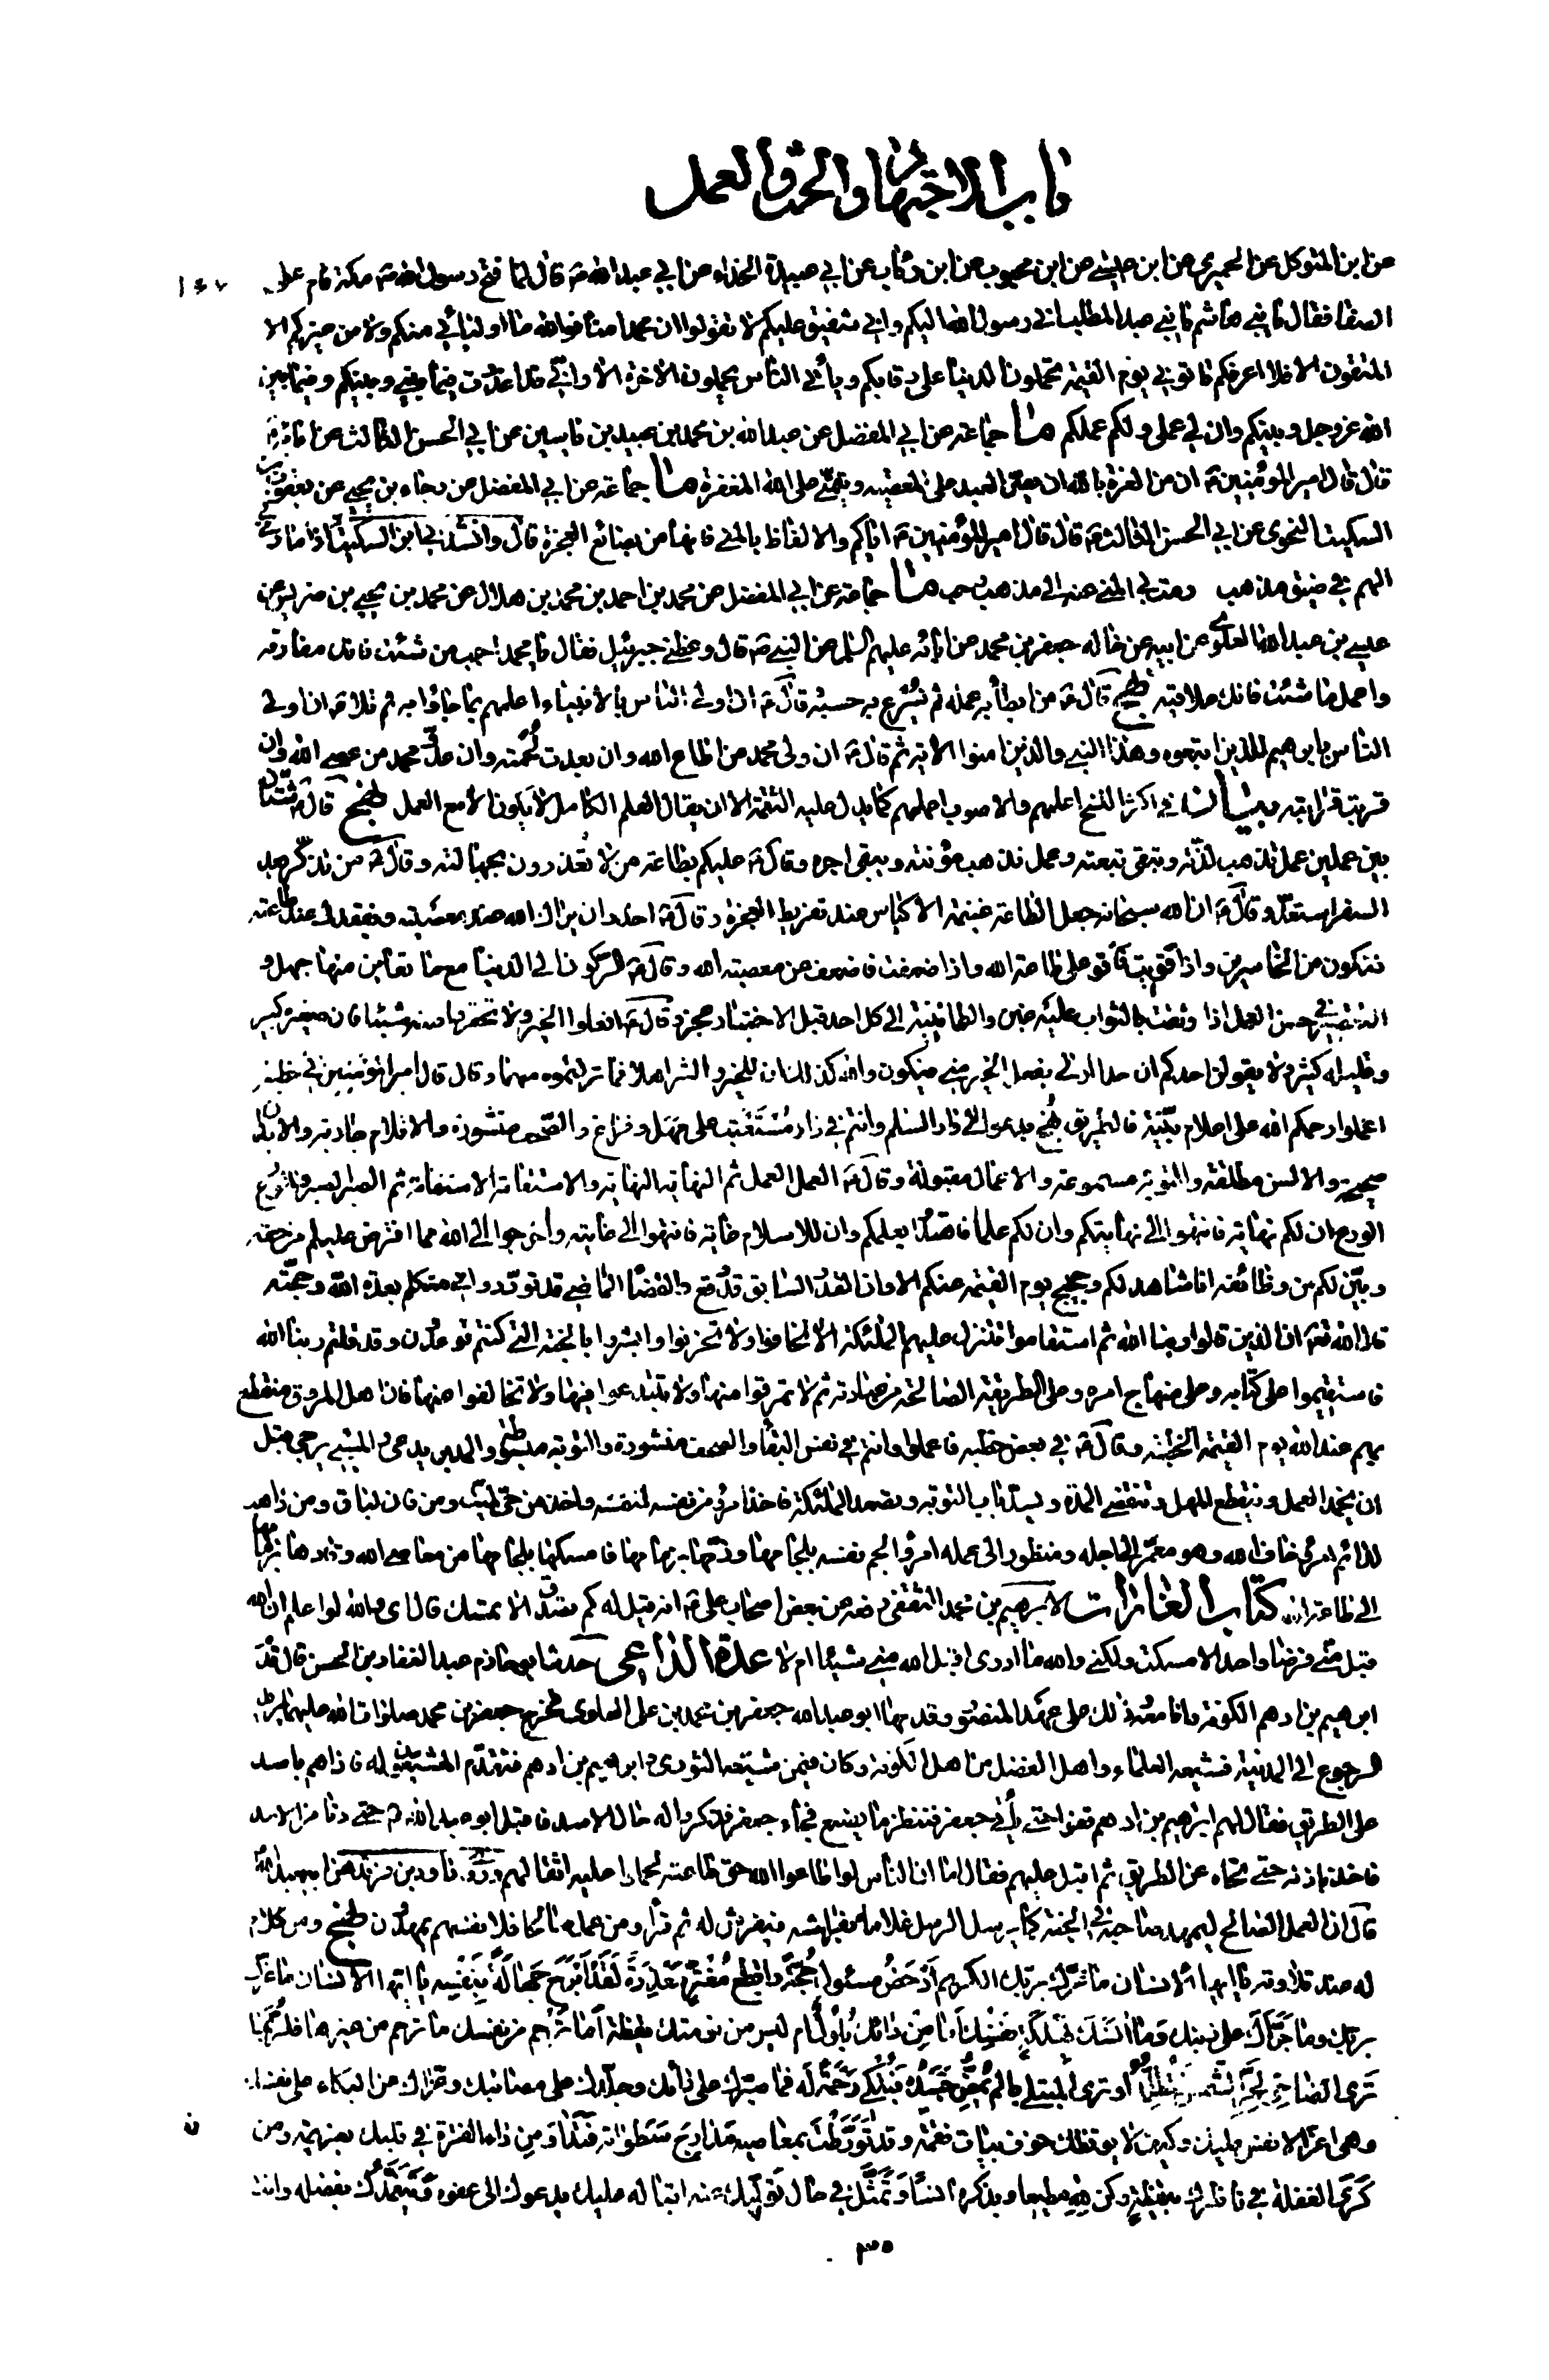 باب الاجتهاد والحث على العمل
عن ابن المتوكل عن الحميري عن ابن عيسى عن ابن محبوب عن ابن رئاب عن ابي عبيدة الحذاء عن ابي عبد الله ع قال لما فتح رسول الله ص مكة قام على
۱٤۷
الصفا فقال يا بني هاشم يا بني عبد المطلب اني رسول الله اليكم واني شفيق عليكم لا تقولوا ان محمدا منا فوالله ما اوليائي منكم ولا من غيركم الا
المتقون الا فلا اعرفكم تاتوني يوم القيمة تحملون الدنيا على رقابكم ويأتي الناس يحملون الاخرة الا واني قد اعذرت فيما بيني وبينكم وفيما بين
الله عز وجل وبينكم وان لي عملي ولكم عملكم ما جماعة عن ابي المفضل عن عبد الله بن محمد بن عبيد بن ياسين عن ابي الحسن الثالث عن ابائه ع
قال قال امير المؤمنين ع ان من الغرة بالله ان يصر العبد على المعصية ويتمنى على الله المغفرة ما جماعة عن ابي المفضل عن رجاء بن يحيى عن يعقوب بن
السكيت النحوي عن ابي الحسن الثالث ع قال قال امير المؤمنين ع اياكم والالطاط بالمنى فانها من بضائع العجزة قال وانشدني ابن السكيت اذا ما رمى بي
الهم في ضيق مذهب رمت بي المنى عنه الى مذهب رحب ما جماعة عن ابي المفضل عن محمد بن احمد بن محمد بن هلال عن محمد بن يحيى بن ضريس عن
عيسى بن عبد الله العلوي عن ابيه عن خاله جعفر بن محمد عن ابائه عليهم السلم عن النبي ص قال وعظني جبرئيل فقال يا محمد احبب من شئت فانك مفارقه
واعمل ما شئت فانك ملاقيه نهج قال ع من ابطأ به عمله لم يسرع به حسبه وقال ع ان اولى الناس بالانبياء اعلمهم بما جاؤا به ثم تلا ع ان اولى
الناس بابرهيم للذين اتبعوه وهذا النبي والذين امنوا الاية ثم قال ع ان ولي محمد من اطاع الله وان بعدت لحمته وان عدو محمد من عصى الله وان
قربت قرابته بيان في اكثر النسخ اعلمهم والاصوب اعملهم كما يدل عليه التتمة الا ان يقال العلم الكامل لا يكون الا مع العمل نهج قال ع شتان
بين عملين عمل تذهب لذته وتبقى تبعته وعمل تذهب مؤنته ويبقى اجره وقال ع عليكم بطاعة من لا تعذرون بجهالته وقال ع من تذكر بعد
السفر استعد وقال ع ان الله سبحانه جعل الطاعة غنيمة الاكياس عند تفريط العجزة وقال ع احذر ان يراك الله عند معصيته ويفقدك عند طاعته
فتكون من الخاسرين واذا قويت فاقو على طاعة الله واذا ضعفت فاضعف عن معصية الله وقال ع الركون الى الدنيا مع ما تعاين منها جهل و
التقصير في حسن العمل اذا وثقت بالثواب عليه غبن والطمانينة الى كل احد قبل الاختبار عجز وقال ع افعلوا الخير ولا تحقروا منه شيئا فان صغيره كبير
وقليله كثير ولا يقولن احدكم ان احدا اولى بفعل الخير مني فيكون والله كذلك ان للخير والشر اهلا فما تركتموه منهما وقال قال امير المؤمنين في خطبة
اعملوا رحمكم الله على اعلام بينة فالطريق نهج يدعو الى دار السلم وانتم في دار مستعتب على مهل وفراغ والصحف منشورة والاقلام جارية والابدان
صحيحة والالسن مطلقة والتوبة مسموعة والاعمال مقبولة وقال ع العمل العمل ثم النهاية النهاية والاستقامة الاستقامة ثم الصبر الصبر والورع
الورع ان لكم نهاية فانتهوا الى نهايتكم وان لكم علما فاهتدوا بعلمكم وان للاسلام غاية فانتهوا الى غايته واخرجوا الى الله مما افترض عليكم من حقه
وبين لكم من وظائفه انا شاهد لكم وحجيج يوم القيمة عنكم الا وان القدر السابق قد وقع والقضاء الماضي قد تورد واني متكلم بعدة الله وحجته
قال الله تعه ان الذين قالوا ربنا الله ثم استقاموا تتنزل عليهم الملئكة الا تخافوا ولا تحزنوا وابشروا بالجنة التي كنتم توعدون وقد قلتم ربنا الله
فاستقيموا على كتابه وعلى منهاج امره وعلى الطريقة الصالحة من عبادته ثم لا تمرقوا منها ولا تبتدعوا فيها ولا تخالفوا عنها فان اهل المروق منقطع
بهم عند الله يوم القيمة الخطبة وقال ع في بعض خطبه فاعملوا وانتم في نفس البقاء والصحف منشورة والتوبة مبسوطة والمدبر يدعى والمسيئ يرجى قبل
ان يخمد العمل وينقطع المهل وتنقضي المدة ويسد باب التوبة وتصعد الملئكة فاخذ امرؤ من نفسه لنفسه واخذ من حي لميت ومن فان لباق ومن ذاهب
لدائم امرؤ خاف الله وهو معمر الى اجله ومنظور الى عمله امرؤ الجم نفسه بلجامها وزمها بزمامها فامسكها بلجامها عن معاصي الله وقادها بزمامها
الى طاعة الله كتاب الغارات لابرهيم بن محمد الثقفي رفعه عن بعض اصحاب علي ع انه قيل له كم تتصدق الا تمسك قال اي والله لو اعلم ان الله
قبل مني فرضا واحدا لامسكت ولكني والله ما ادري اقبل الله مني شيئا ام لا عدة الداعي حدث ابو حازم عبد الغفار بن الحسن قال قدم
ابرهيم بن ادهم الكوفة وانا معه وذلك على عهد المنصور وقدمها ابو عبد الله جعفر بن محمد بن علي العلوي فخرج جعفر بن محمد صلوات الله عليهما يريد
الرجوع الى المدينة فشيعه العلماء واهل الفضل من اهل الكوفة وكان فيمن شيعه الثوري وابرهيم بن ادهم فتقدم المشيعون له فاذا هم باسد
على الطريق فقال لهم ابرهيم بن ادهم قفوا حتى يأتي جعفر فننظر ما يصنع فجاء جعفر فذكروا له حال الاسد فاقبل ابو عبد الله ع حتى دنا من الاسد
فاخذ باذنه حتى نحاه عن الطريق ثم اقبل عليهم فقال اما ان الناس لو اطاعوا الله حق طاعته لحملوا عليه اثقالهم داود بن فرقد عن ابي عبد الله ع
قال ان العمل الصالح ليمهد لصاحبه في الجنة كما يرسل الرجل غلاما بفراشه فيفرش له ثم قرأ ومن عمل صالحا فلانفسهم يمهدون نهج ومن كلام
له عند تلاوته يا ايها الانسان ما غرك بربك الكريم ادحض مسئول حجة واقطع مغتر معذرة لقد ابرح جهالة بنفسه يا ايها الانسان ما غرك
بربك وما جراك على ذنبك وما انسك بهلكة نفسك اما من دائك بلول ام ليس من نومتك يقظة اما ترحم من نفسك ما ترحم من غيرها فلربما
ترى الضاحي لحر الشمس فتظله او ترى المبتلى بالم يمض جسده فتبكي رحمة له فما صبرك على دائك وجلدك على مصائبك وعزاك عن البكاء على نفسك
وهي اعز الانفس عليك وكيف لا يوقظك خوف بيات نقمة وقد تورطت بمعاصيه مدارج سطواته فتداو من داء الفترة في قلبك بعزيمة ومن
ن
كرى الغفلة في ناظرك بيقظة وكن لله مطيعا وبذكره انسا وتمثل في حال توليك عنه اقباله عليك يدعوك الى عفوه ويتغمدك بفضله وانت
۳۵